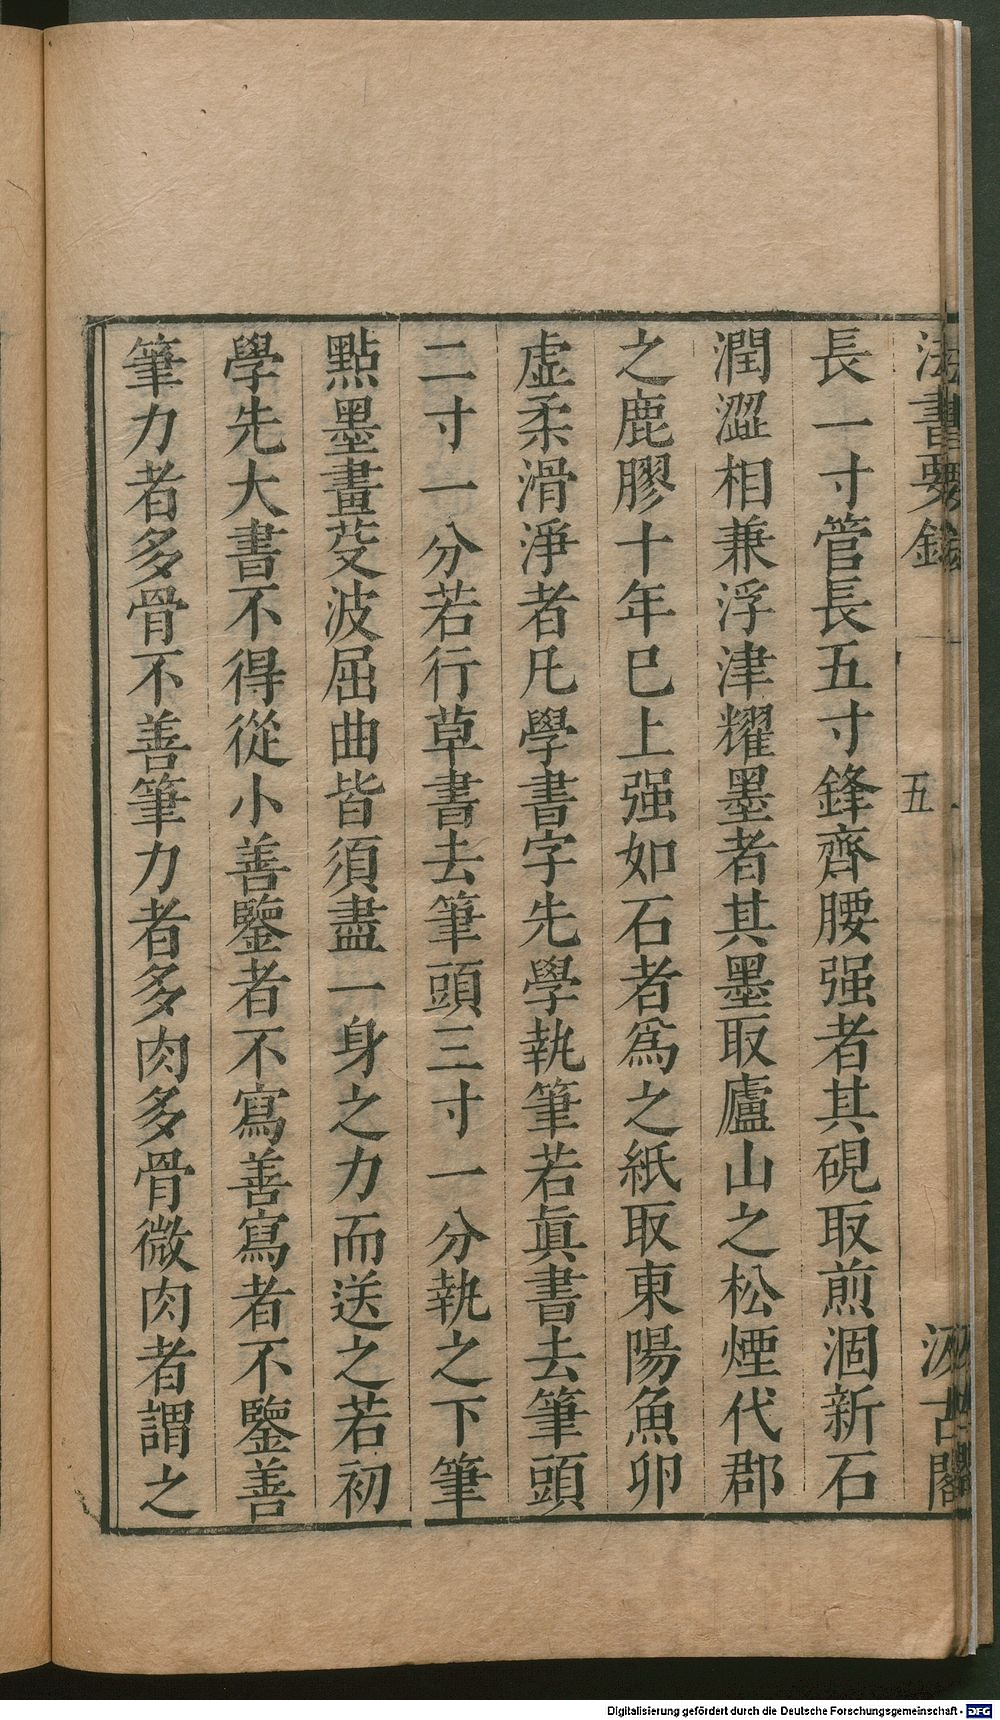 法書要錄
五
汲古閣
長一寸管長五寸鋒齊腰强者其硯取煎涸新石
潤澀相兼浮津耀墨者其墨取廬山之松煙代郡
之鹿膠十年已上强如石者爲之紙取東陽魚卵
虛柔滑淨者凡學書字先學執筆若眞書去筆頭
二寸一分若行草書去筆頭三寸一分執之下筆
點墨畫芟波屈曲皆須盡一身之力而送之若初
學先大書不得從小善鑒者不寫善寫者不鑒善
筆力者多骨不善筆力者多肉多骨微肉者謂之
Digitalisierung gefördert durch die Deutsche Forschungsgemeinschaft - DFG